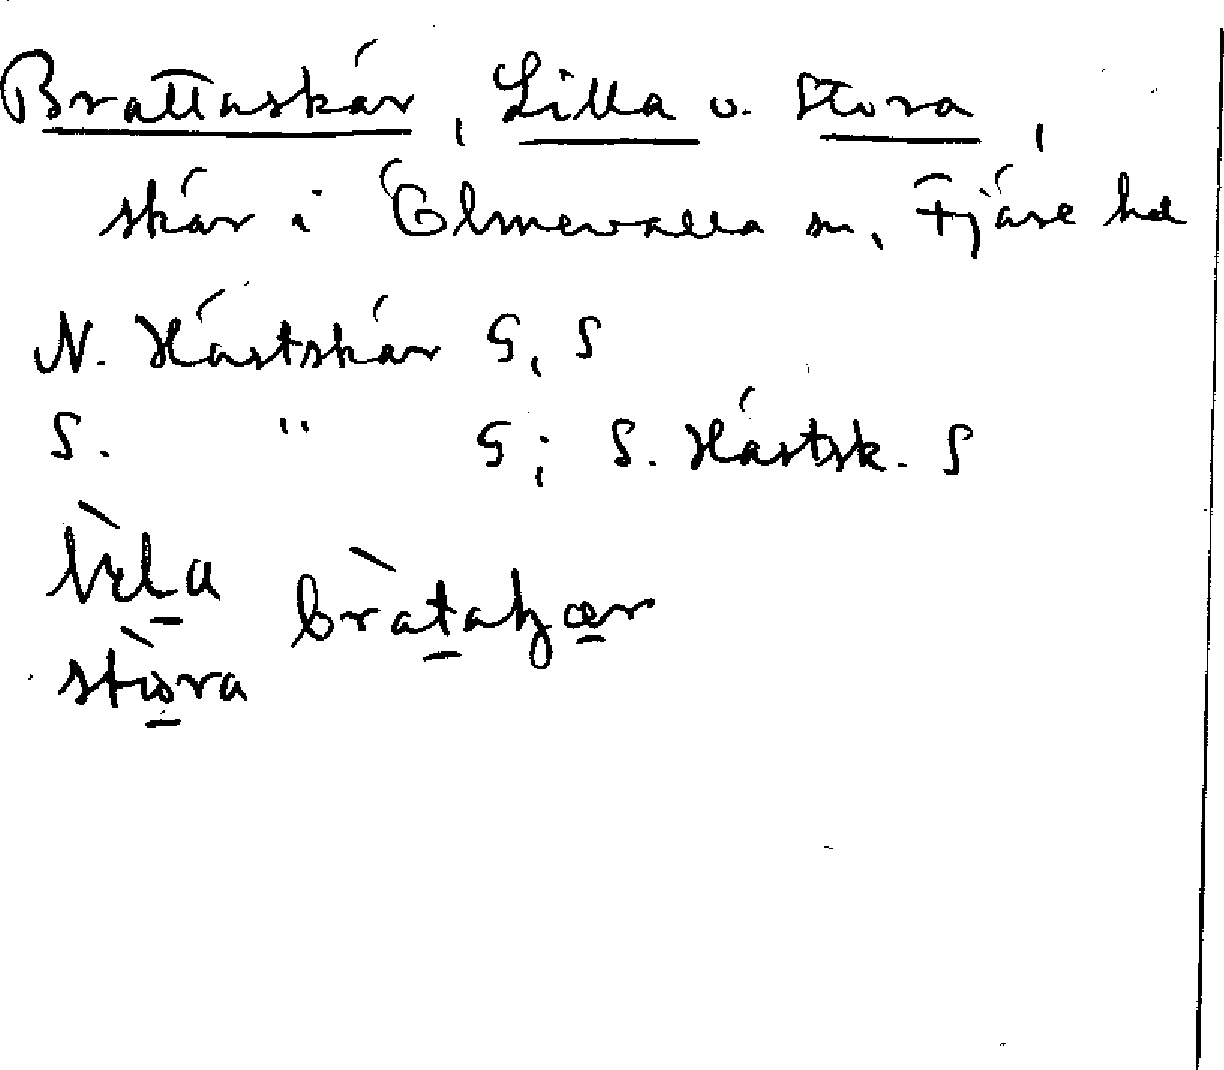 Brattaskär, Lilla o. Stora,
skär i Ölmevalla sn, Fjäre hd
N. Hästskär G, S
S. " G; S. Hästsk. S
stora